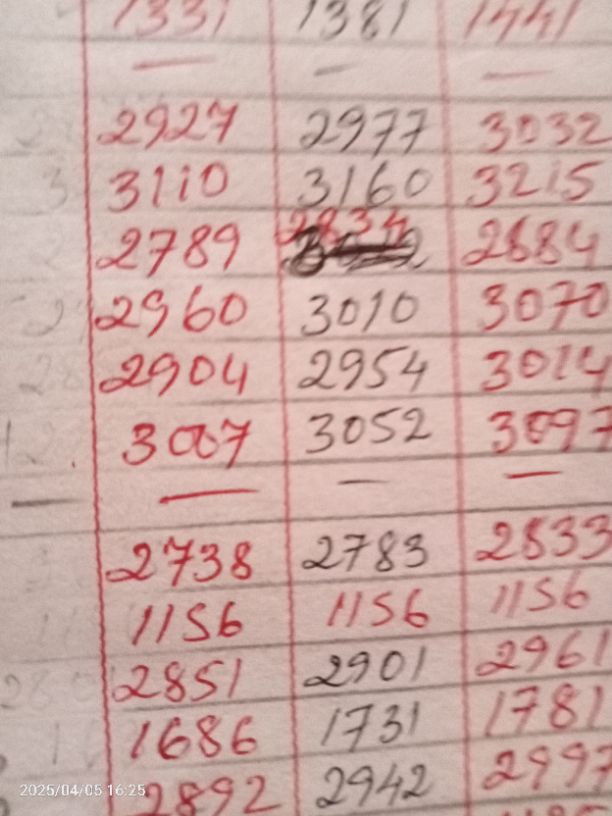 1331 1381 1441
— — —
2927 2977 3032
3110 3160 3215
2834
2789 2884
2960 3010 3070
2904 2954 3014
3007 3052 3097
— — — —
2738 2783 2833
1156 1156 1156
2851 2901 2961
1686 1731 1781
2892 2942 2997
2025/04/05 16:25